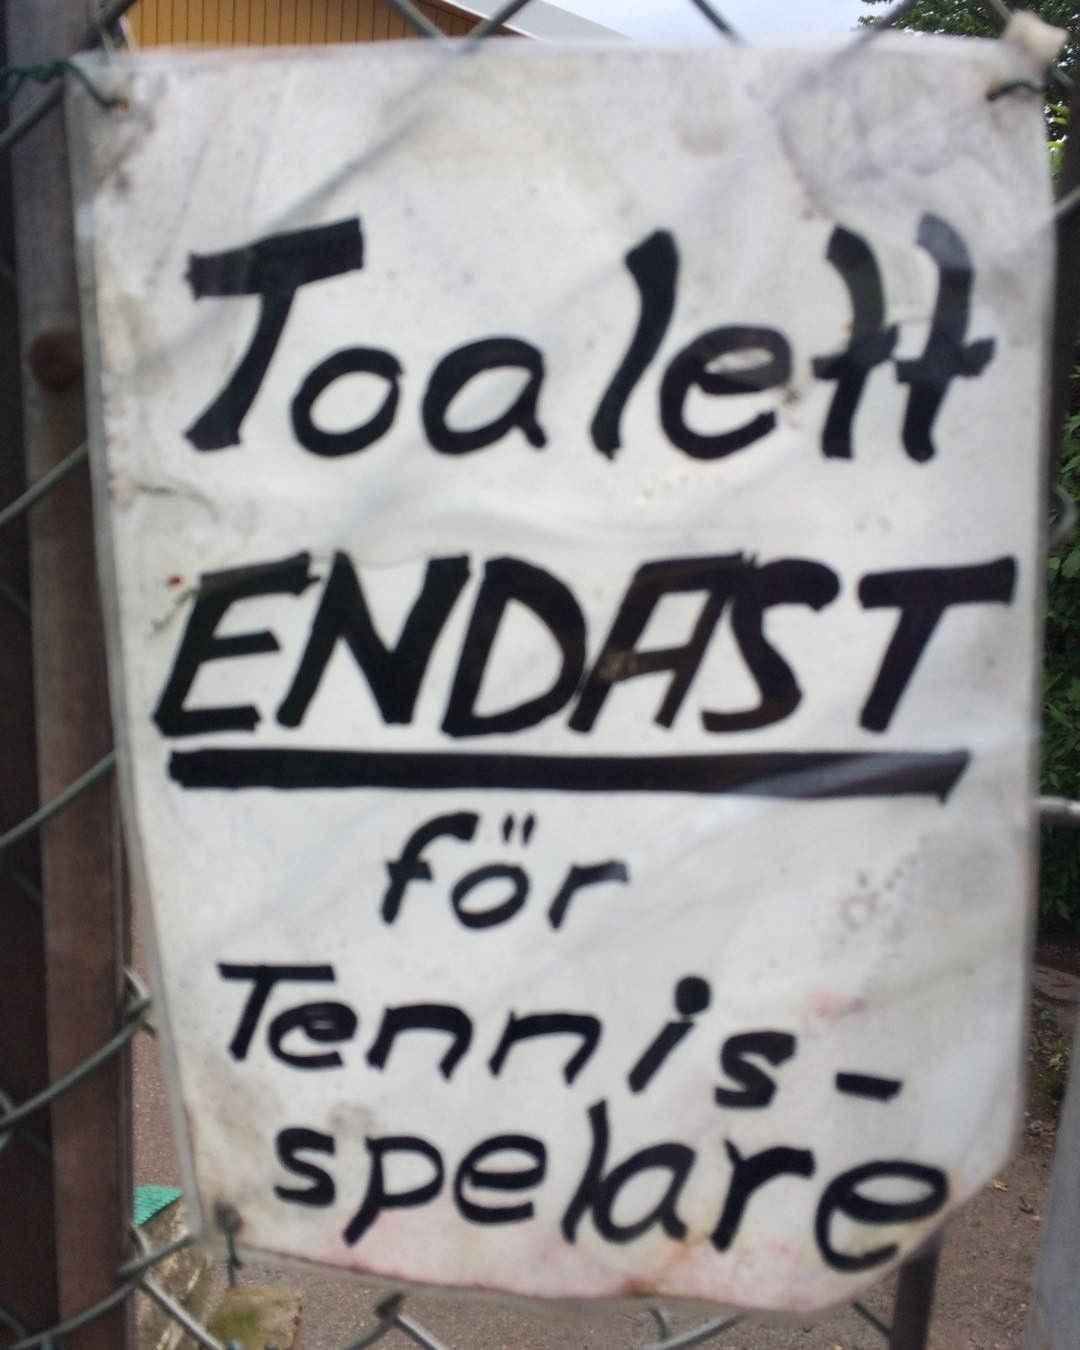 Toalett
ENDAST
för
Tennis-
spelare